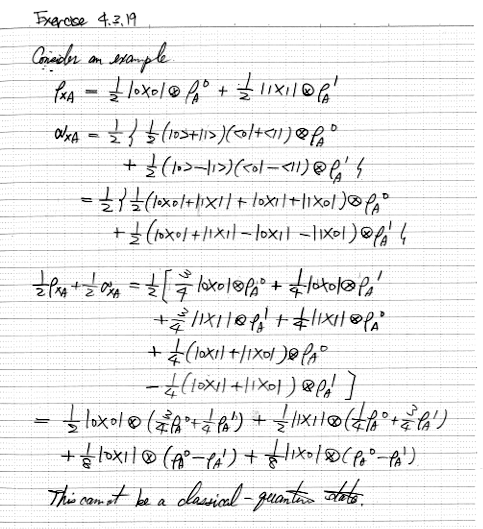 Exercise 4.3.19
Consider an example
ρ_XA = 1/2 |0X0|⊗ρ_A^0 + 1/2 |1X1|⊗ρ_A^1
σ_XA = 1/2 { 1/2 (|0>+|1>)(<0|+<1|)⊗ρ_A^0
+ 1/2 (|0>-|1>)(<0|-<1|)⊗ρ_A^1 }
= 1/2 { 1/2 (|0X0|+|1X1|+|0X1|+|1X0|)⊗ρ_A^0
+ 1/2 (|0X0|+|1X1|-|0X1|-|1X0|)⊗ρ_A^1 }
1/2 ρ_XA + 1/2 σ_XA = 1/2 [ 3/4 |0X0|⊗ρ_A^0 + 1/4 |0X0|⊗ρ_A^1
+ 3/4 |1X1|⊗ρ_A^1 + 1/4 |1X1|⊗ρ_A^0
+ 1/4 (|0X1|+|1X0|)⊗ρ_A^0
- 1/4 (|0X1|+|1X0|)⊗ρ_A^1 ]
= 1/2 |0X0|⊗(3/4 ρ_A^0 + 1/4 ρ_A^1) + 1/2 |1X1|⊗(1/4 ρ_A^0 + 3/4 ρ_A^1)
+ 1/8 |0X1|⊗(ρ_A^0-ρ_A^1) + 1/8 |1X0|⊗(ρ_A^0-ρ_A^1)
This cannot be a classical-quantum state.